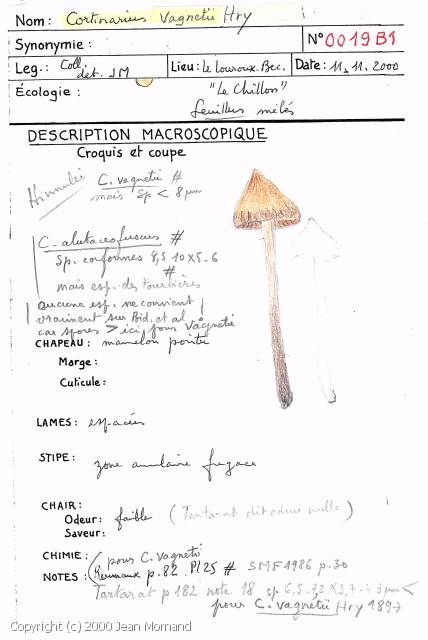 Nom: Cortinarius Vagnetii Hry
Synonymie:
N° 0019 B1
Leg.: Coll. det. JM
Lieu: Le Louroux. Bec.
Date: 11.11.2000
Écologie: "Le Chillon"
feuillus mêlés
DESCRIPTION MACROSCOPIQUE
Croquis et coupe
Hinnulei
C. vagnetii #
mais sp < 8 µm
C. alutaceofuscus #
Sp. conformes 8,5 10 x 5-6
#
mais esp. des Tourbières
Aucune esp. ne convient
vraiment sur Bid. et al
car spores > ici pour Vagnetii
CHAPEAU: mamelon pointu
Marge:
Cuticule:
LAMES: espacées
STIPE: zone annulaire fugace
CHAIR:
Odeur: faible (Tartarat dit odeur nulle)
Saveur:
CHIMIE: pour C. vagnetii
NOTES: Reumaux p. 82. Pl 25 # SMF 1986 p. 30
Tartarat p 182 note 18 sp 6,5-7,2 x 3,7-4,3 µm <
pour C. vagnetii Hry 1897
Copyright (c) 2000 Jean Mornand